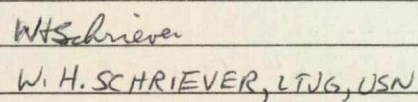 WHSchriever
W. H. SCHRIEVER, LTJG, USN